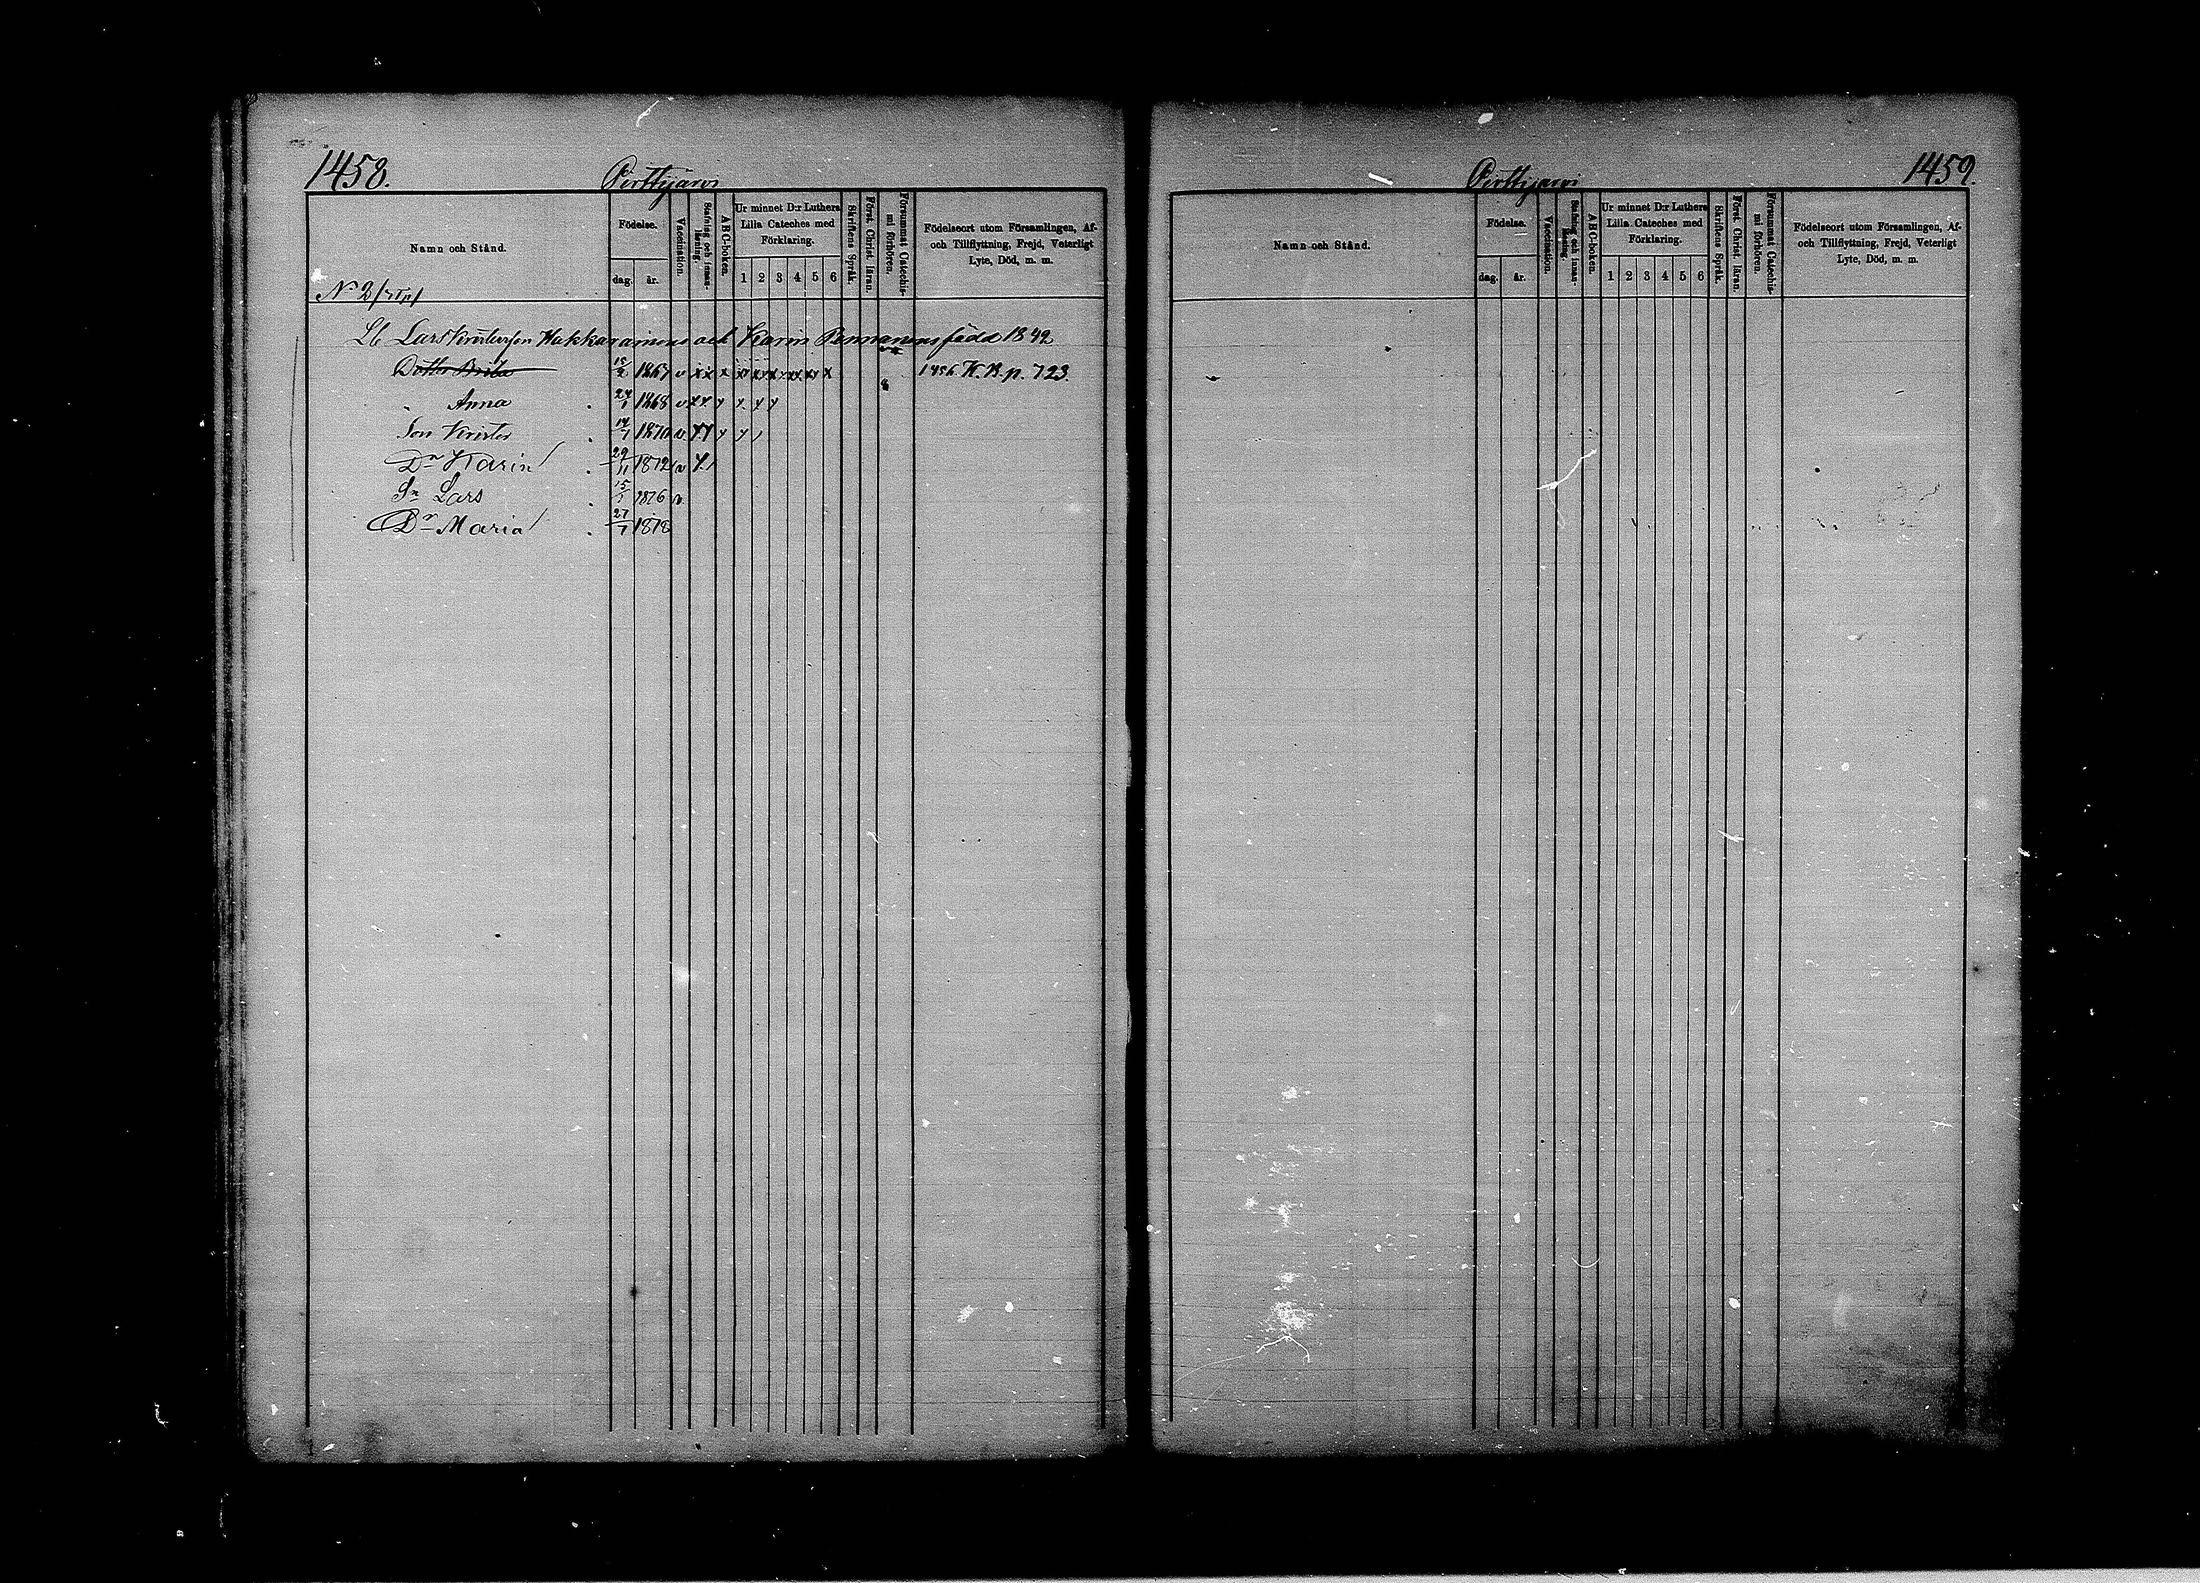 1458.
Perttyjärvi
Namn och Stånd.
Födelse.
dag. år.
Vaccination.
Stafning och innan-läsning.
ABC-boken.
Ur minnet D:r Luthers Lilla Cateches med Förklaring.
1 2 3 4 5 6
Skriftens Språk.
Först. Christ. läran.
Försummat Catechis-mi förhören.
Födelseort utom Församlingen, Af- och Tillflyttning, Frejd, Veterligt Lyte, Död, m. m.
N:o 2
Lars Kristersson Hakkarainen och Karin Pennanens född 1842
Dotter Brita 15/2 1867 v x x x x x x x x x K. B. p. 723.
Anna 24/1 1868 v x x y y y y
Son Krister 14/1 1870 v y y y y
Dr Karin 29/11 1872 v y
Sn Lars 15/1 1876 v
Dr Maria 27/1 1878
1459.
Perttyjärvi
Namn och Stånd.
Födelse.
dag. år.
Vaccination.
Stafning och innan-läsning.
ABC-boken.
Ur minnet D:r Luthers Lilla Cateches med Förklaring.
1 2 3 4 5 6
Skriftens Språk.
Först. Christ. läran.
Försummat Catechis-mi förhören.
Födelseort utom Församlingen, Af- och Tillflyttning, Frejd, Veterligt Lyte, Död, m. m.